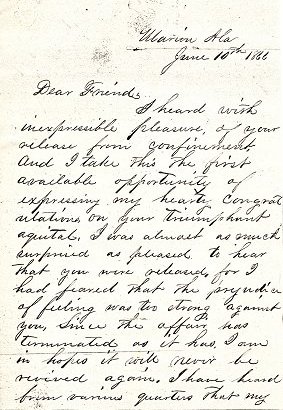 Marion Ala
June 10th 1866
Dear Friend,
I heard with
inexpressible pleasure, of your
release from confinement
And I take this the first
available opportunity of
expressing my hearty congrat
ulations on your triumphant
aquital. I was almost as much
surprised as pleased to hear
that you were released, for I
had feared that the prejudice
of feeling was too strong against
you, since the affair has
terminated as it has, I am
in hopes it will never be
revived again. I have heard
from various quarters that my